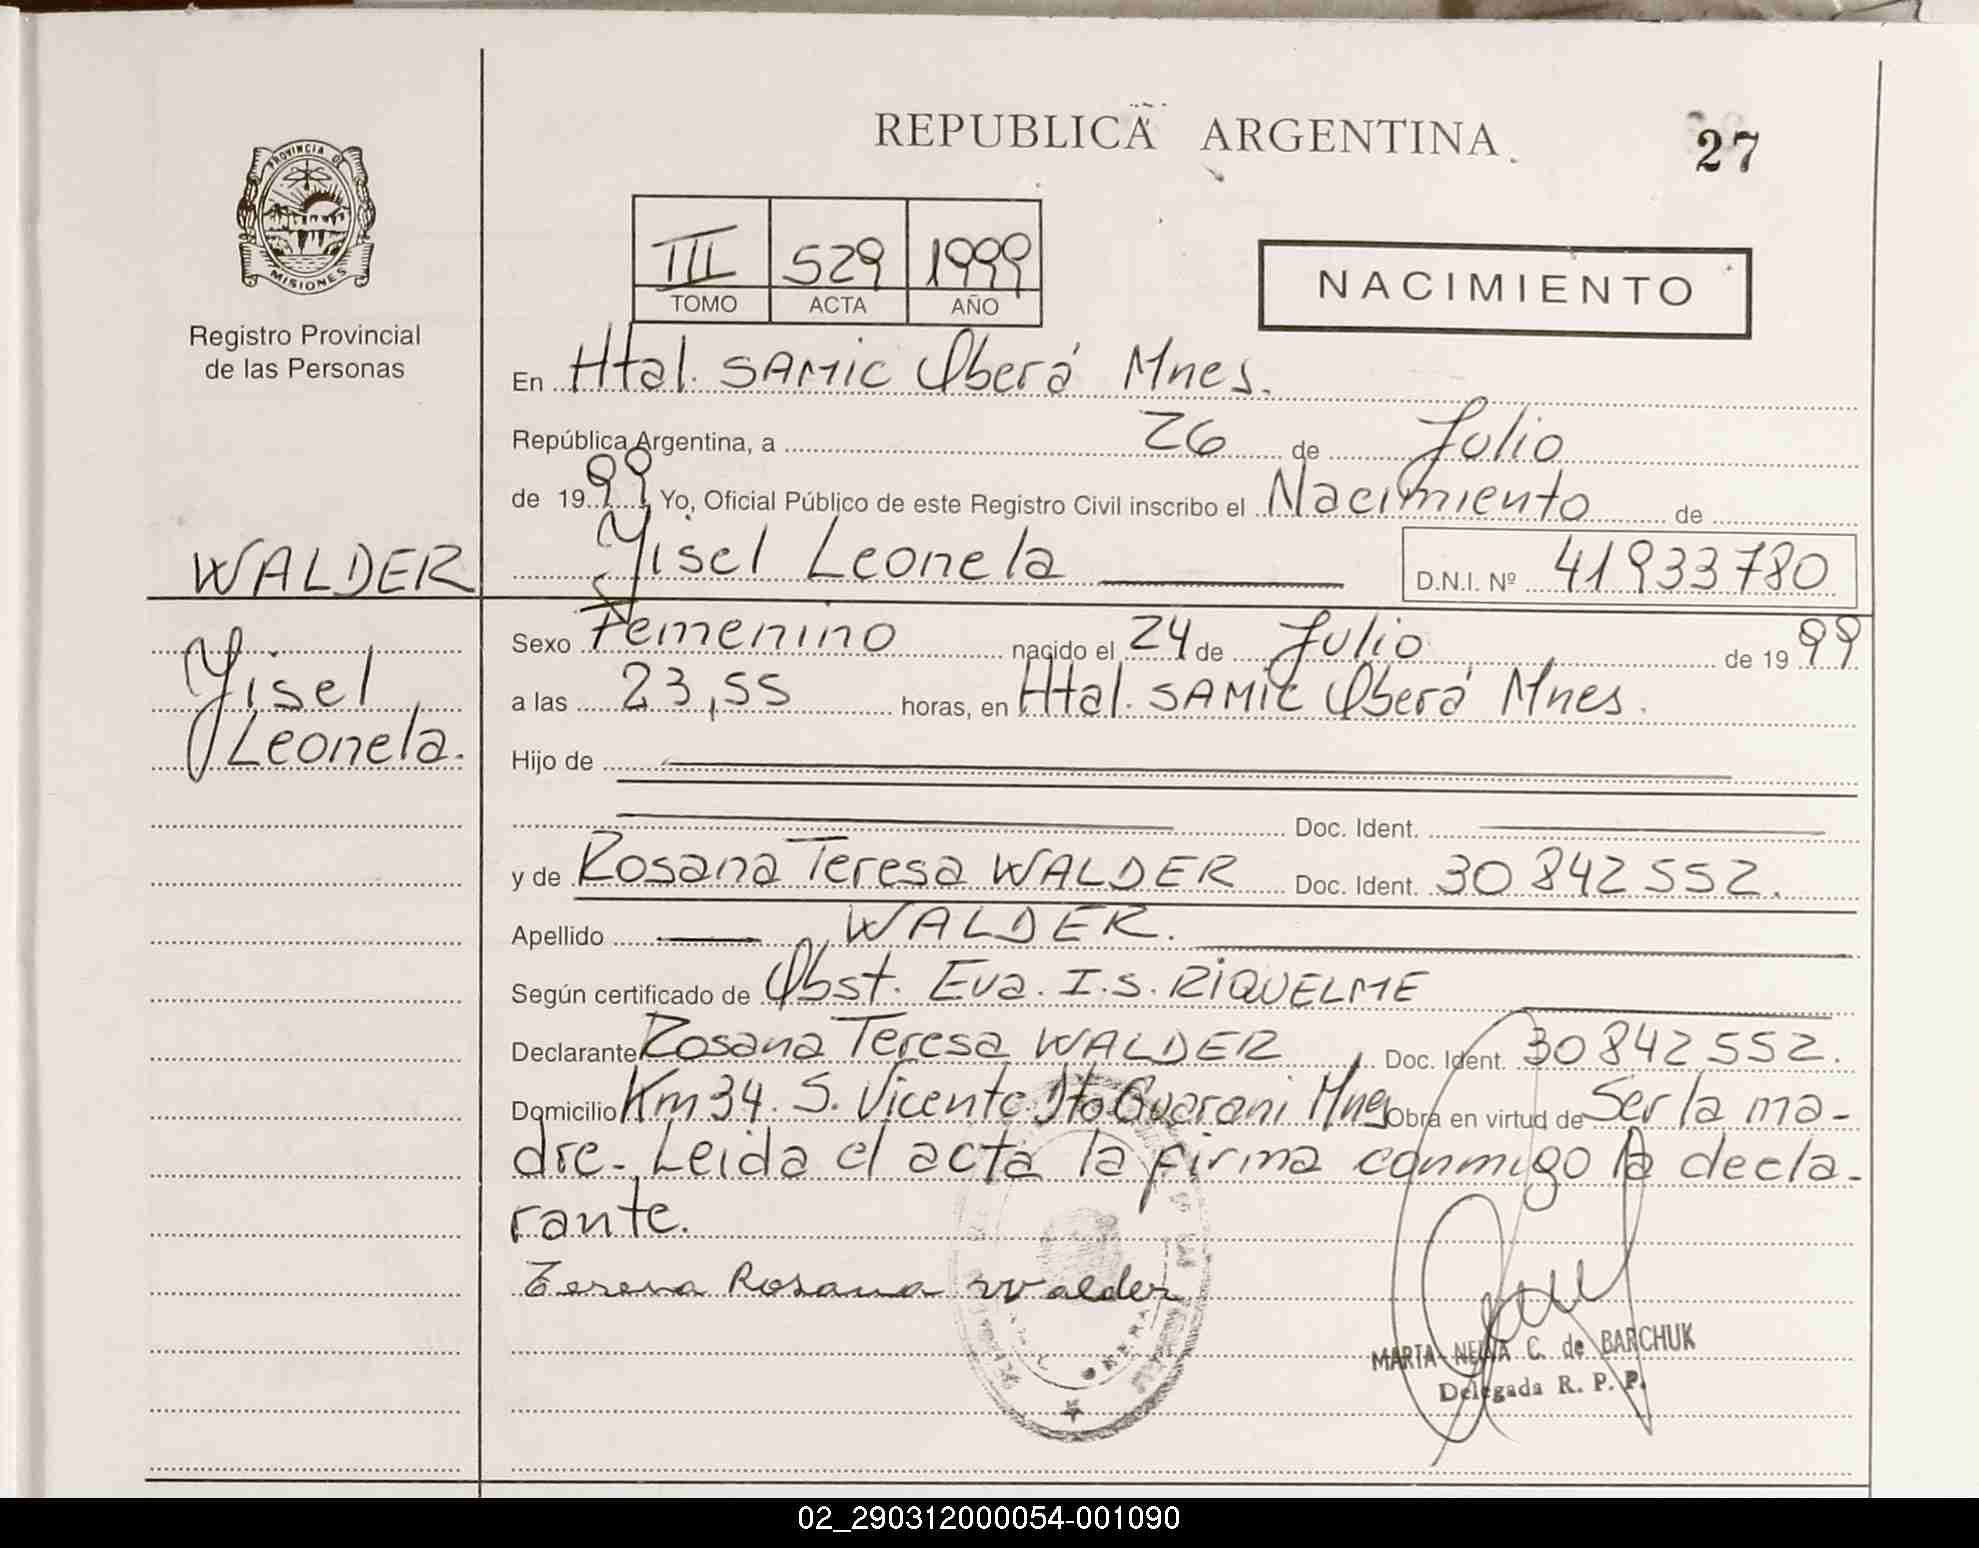 REPUBLICA ARGENTINA
27
PROVINCIA DE
MISIONES
Registro Provincial
de las Personas
III 529 1999
TOMO ACTA AÑO
NACIMIENTO
En Htal. SAMIC Oberá Mnes.
República Argentina, a 26 de Julio
de 1999 Yo, Oficial Público de este Registro Civil inscribo el Nacimiento de
WALDER
Yisel Leonela D.N.I. Nº 41933780
Yisel
Leonela.
Sexo Femenino nacido el 24 de Julio de 1999
a las 23,55 horas, en Htal. SAMIC Oberá Mnes.
Hijo de
Doc. Ident.
y de Rosana Teresa WALDER Doc. Ident. 30842552.
Apellido WALDER.
Según certificado de Obst. Eva. I.S. RIQUELME
Declarante Rosana Teresa WALDER Doc. Ident. 30842552.
Domicilio Km 34. S. Vicente Dto Guarani Mnes Obra en virtud de Ser la ma-
dre. Leida el acta la firma conmigo la decla-
rante.
Teresa Rosana Walder
MARTA NELIA C. de BARCHUK
Delegada R. P. P.
02_290312000054-001090